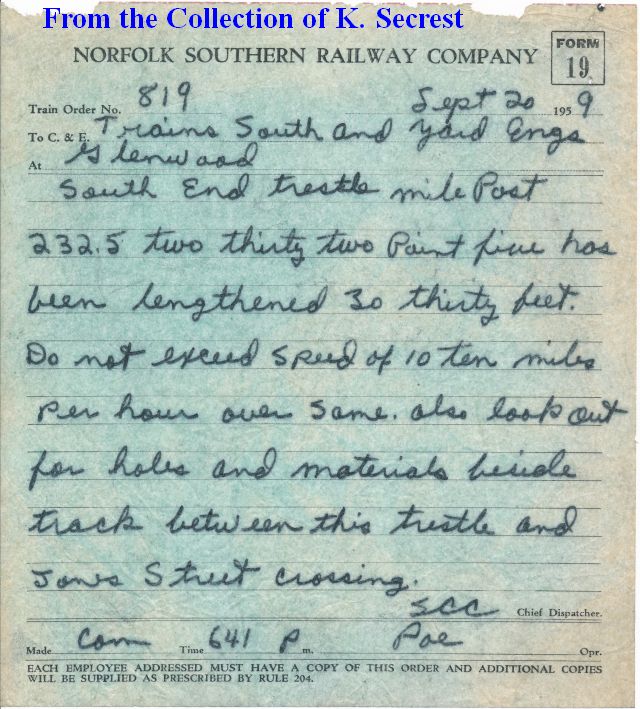 From the Collection of K. Secrest
NORFOLK SOUTHERN RAILWAY COMPANY
FORM
19
Train Order No. 819 Sept 20 1959
To C. & E. Trains South and Yard Engs
At Glenwood
South End trestle mile Post
232.5 two thirty two Point five has
been lengthened 30 thirty feet.
Do not exceed speed of 10 ten miles
per hour over same. also look out
for holes and materials beside
track between this trestle and
Jones Street crossing.
SCC Chief Dispatcher.
Made Com Time 641 P m. Poe Opr.
EACH EMPLOYEE ADDRESSED MUST HAVE A COPY OF THIS ORDER AND ADDITIONAL COPIES
WILL BE SUPPLIED AS PRESCRIBED BY RULE 204.